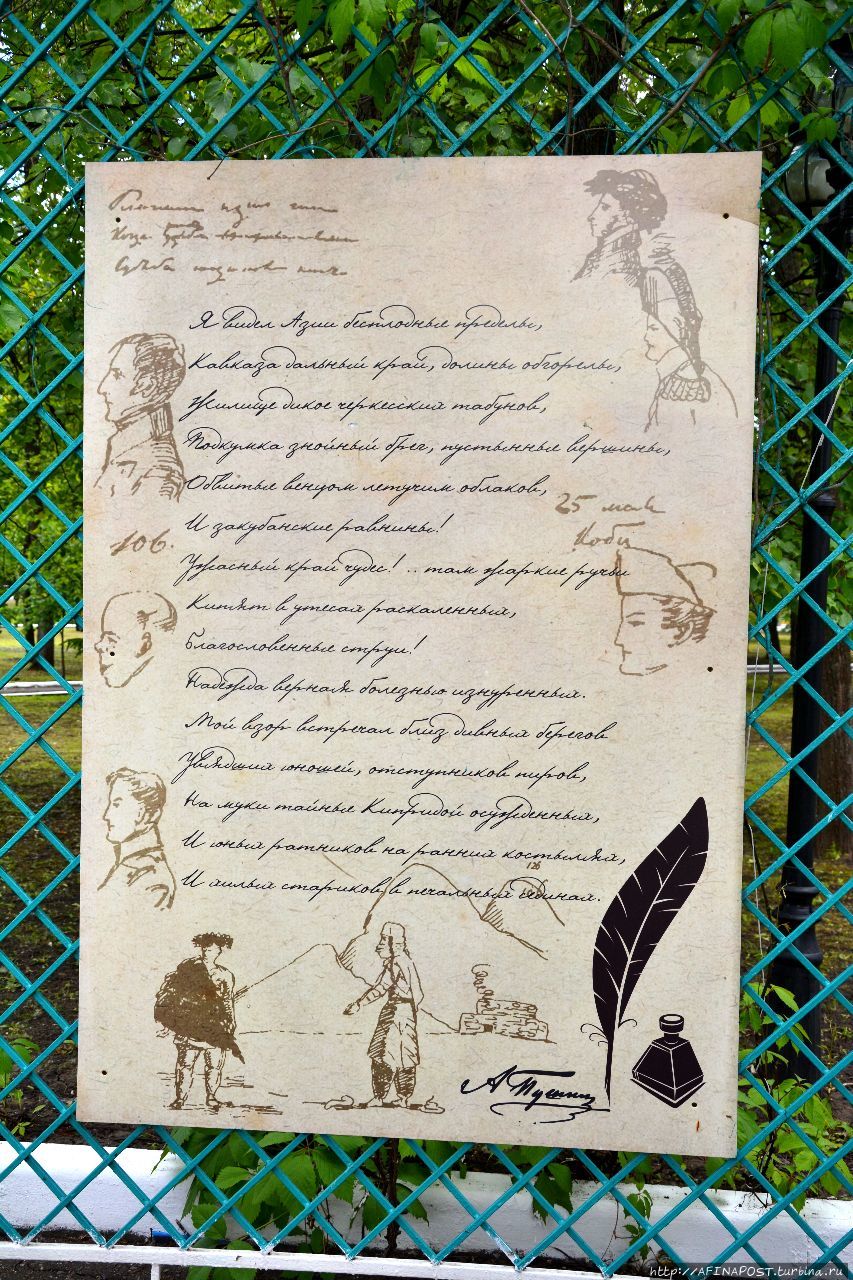 Я видел Азии бесплодные пределы,
Кавказа дальный край, долины обгорелы,
Жилище дикое черкесских табунов,
Подкумка знойный брег, пустынные вершины,
Обвитые венцом летучим облаков,
И закубанские равнины!
Ужасный край чудес!.. там жаркие ручьи
Кипят в утесах раскаленных,
Благословенные струи!
Надежда верная болезнью изнуренных.
Мой взор встречал близ дивных берегов
Увядших юношей, отступников пиров,
На муки тайные Кипридой осужденных,
И юных ратников на ранних костылях,
И хилых стариков в печальных сединах.
25 мая
Коби
106.
126
А Пушкин
http://AFINAPOST.turbina.ru